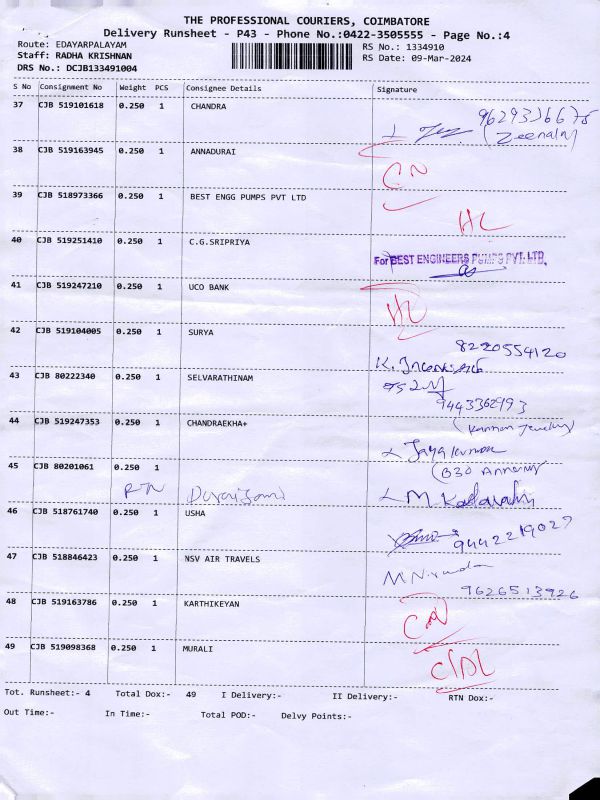 THE PROFESSIONAL COURIERS, COIMBATORE
Delivery Runsheet - P43 - Phone No.:0422-3505555 - Page No.:4
Route: EDAYARPALAYAM RS No.: 1334910
Staff: RADHA KRISHNAN RS Date: 09-Mar-2024
DRS No.: DCJB133491004
S No Consignment No Weight PCS Consignee Details Signature
37 CJB 519101618 0.250 1 CHANDRA
(Zeenath)
38 CJB 519163945 0.250 1 ANNADURAI
CN
39 CJB 518973366 0.250 1 BEST ENGG PUMPS PVT LTD
HL
40 CJB 519251410 0.250 1 C.G.SRIPRIYA
For BEST ENGINEERS PUMPS PVT. LTD.
41 CJB 519247210 0.250 1 UCO BANK
HL
42 CJB 519104005 0.250 1 SURYA
8220554120
43 CJB 80222340 0.250 1 SELVARATHINAM
9443362993
44 CJB 519247353 0.250 1 CHANDRAEKHA+
Jayakumar
45 CJB 80201061 0.250 1
RTN
46 CJB 518761740 0.250 1 USHA
9442219027
47 CJB 518846423 0.250 1 NSV AIR TRAVELS
9626513926
48 CJB 519163786 0.250 1 KARTHIKEYAN
CN
49 CJB 519098368 0.250 1 MURALI
Tot. Runsheet:- 4 Total Dox:- 49 I Delivery:- II Delivery:- RTN Dox:-
Out Time:- In Time:- Total POD:- Delvy Points:-